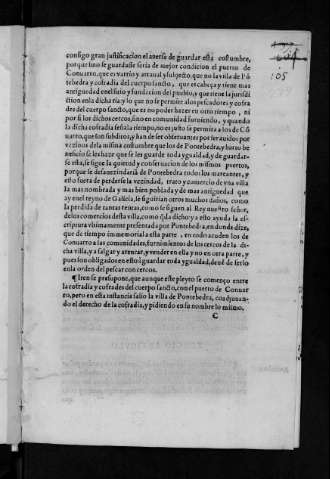 consigo gran justificacion el auerse de guardar esta costumbre,
porque sino se guardasse seria de mejor condicion el puerto de
Conuarro, que es varrio y arraual y subjecto, que no la villa de Pō
tebedra y cofradia del cuerpo sancto, que es cabeça y tiene mas
antiguedad en el sitio y fundacion del pueblo, y que tiene la jurisdi
cion en la dicha ria y lo que no se permite a los pescadores y cofra
des del cuerpo sancto, que es no poder hazer en otro tiempo, ni
por si los dichos cercos, sino en comunidad faroiendo, y quando
la dicha cofradia señala tiempo, no es justo se permita a los de Cō
uarro, que son subditos, y han de ser obseruantes por ser auidos por
vezinos de la misma costumbre que los de Pontebedra, y con su be
neficio se les haze que se les guarde toda ygualdad, y de guardar-
se esta, se sigue la quietud y conseruacion de los mismos puertos,
porque se desauezindaria de Pontebedra todos los mareantes, y
esto fuera de perderse la vezindad, trato y comercio de vna villa
la mas nombrada y mas bien poblada y de mas antiguedad que
ay en el reyno de Galizia, se siguirian otros muchos daños, como
la perdida de tantas rentas, como se siguen al Rey nuestro señor,
de los comercios desta villa, como q̄da dicho: y a esto ayuda la es-
criptura vltimamente presentada por Pontebedra, en donde dize,
que de tiempo immemorial a esta parte, en todo acuden los de
Conuarro a las comunidades, furnimientos de los cercos de la di-
cha villa, y a salgar y atencar, y vender en ella y no en otra parte, y
pues son obligados en esto a guardar toda ygualdad, deuē de serlo
en la orden del pescar con cercos.
¶ Iten se presupone, que aunque este pleyto se començo entre
la cofradia y cofrades del cuerpo sancto, con el puerto de Connar
ro, pero en esta instancia salio la villa de Pontebedra, coadjuuando
el derecho de la cofradia, y pidiendo en su nombre lo mismo.
C
105